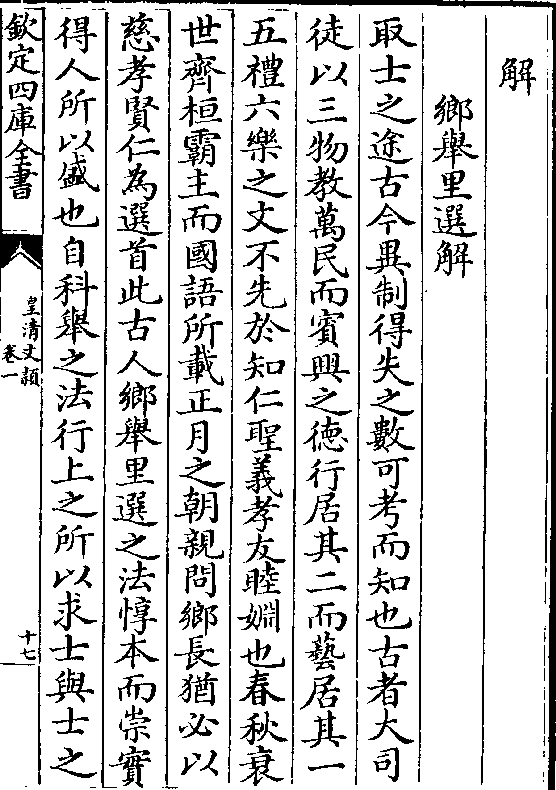 解
鄉舉里選解
取士之途古今異制得失之數可考而知也古者大司
徒以三物教萬民而賓興之徳行居其二而藝居其一
五禮六樂之文不先於知仁聖義孝友睦婣也春秋衰
世齊桓霸主而國語所載正月之朝親問鄉長猶必以
慈孝賢仁為選首此古人鄉舉里選之法惇本而崇實
得人所以盛也自科舉之法行上之所以求士與士之
欽定四庫全書
皇清文穎
卷一
十七